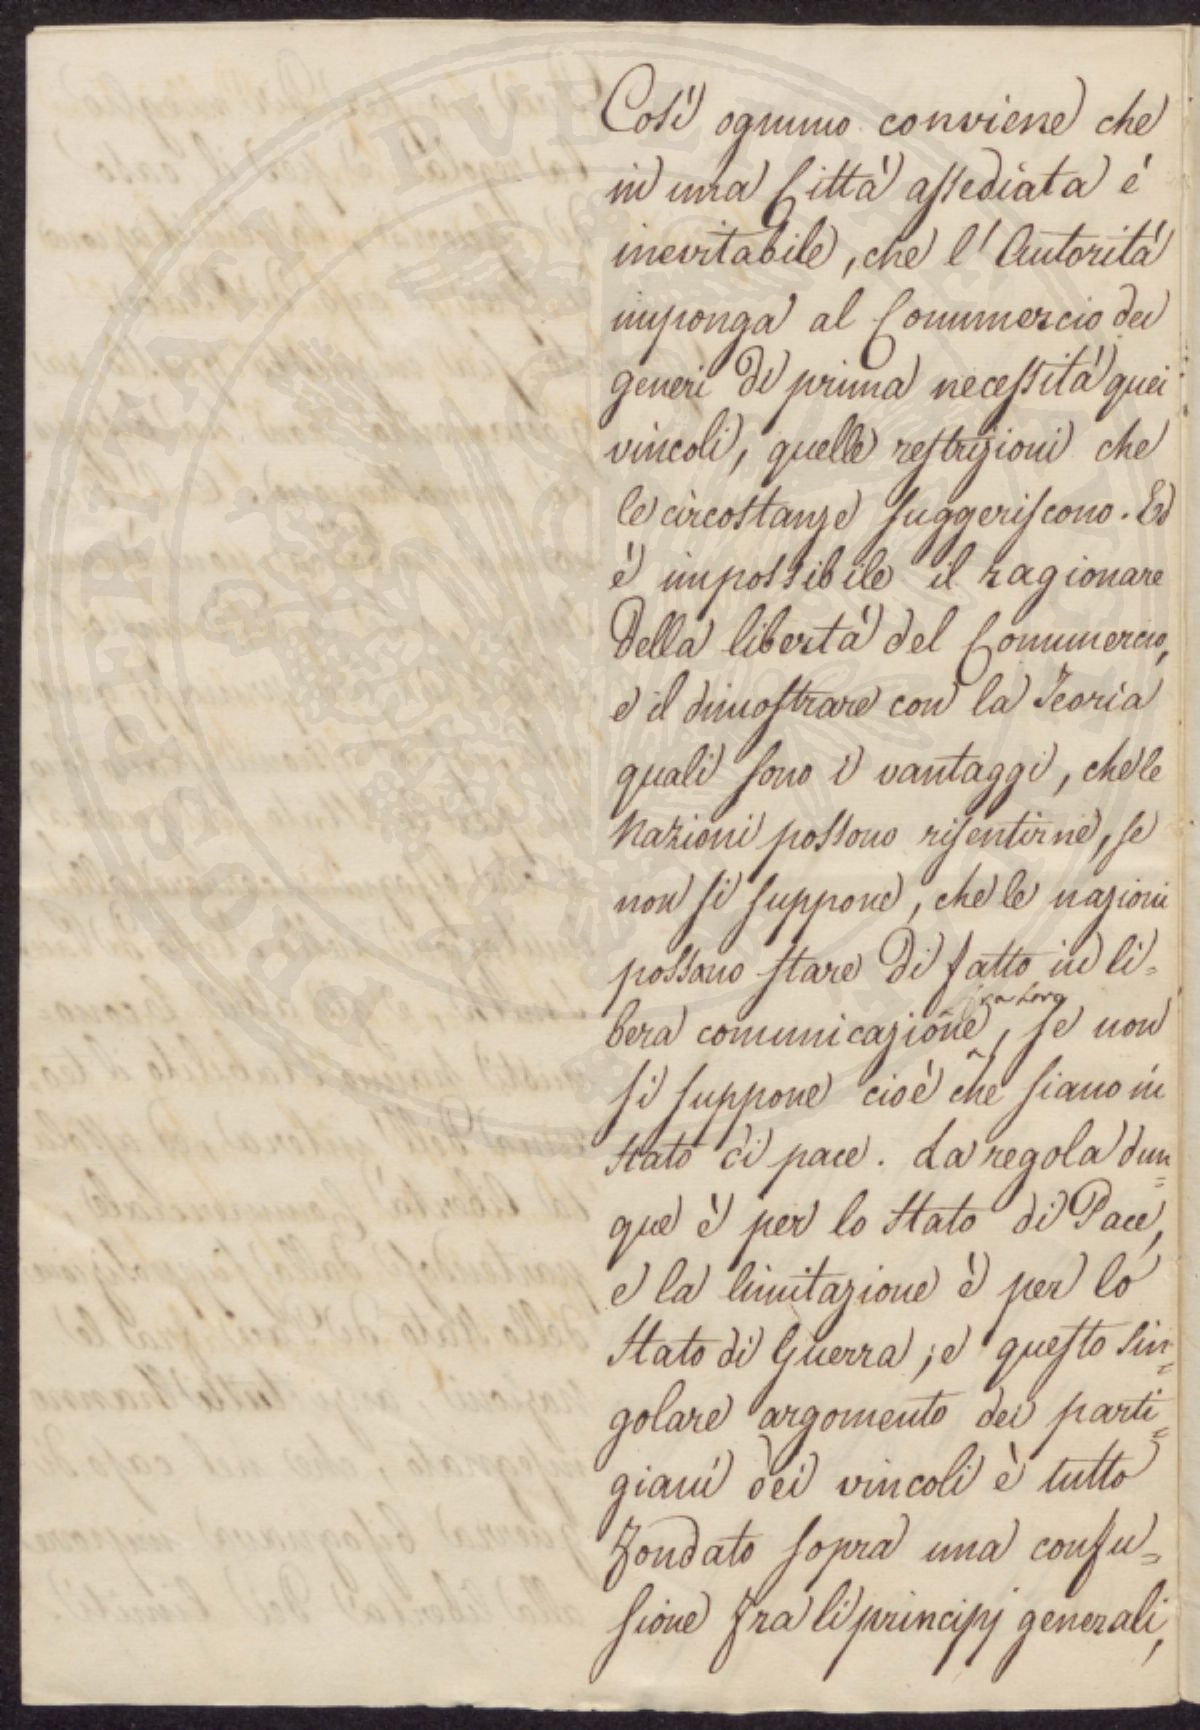 Così ognuno conviene che
in una Città assediata è
inevitabile, che l'Autorità
imponga al Commercio dei
generi di prima necessità quei
vincoli, quelle restrizioni che
le circostanze suggeriscono. Ed
è impossibile il ragionare
della libertà del Commercio,
e il dimostrare con la Teoria
quali sono i vantaggi, che le
Nazioni possono risentirne, se
non si suppone, che le nazioni
possano stare di fatto in li=
fra loro
bera comunicazione, se non
si suppone cioè che siano in
stato di pace. La regola dun=
que è per lo stato di Pace,
e la limitazione è per lo
stato di Guerra; e questo sin=
golare argomento dei parti=
giani dei vincoli è tutto
fondato sopra una confu=
sione fra li principj generali,